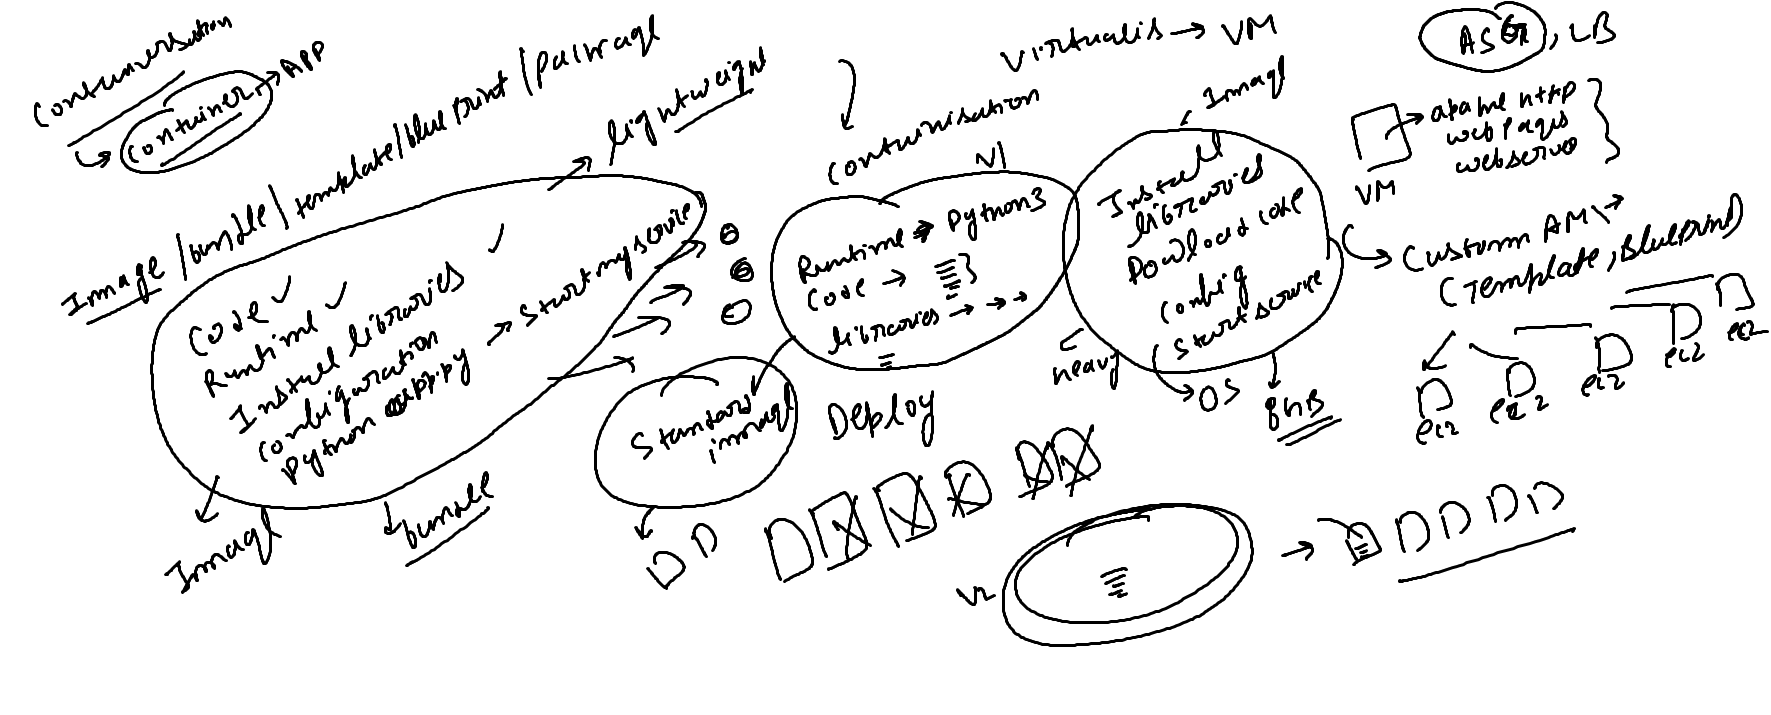 Container → APP
Image / bundle / template / blueprint / package
lightweight
Code ✓
Runtime ✓
Install libraries ✓
configuration
Python app.py → Start myservice
Image
bundle
Virtualis → VM
Containisation
V1
Runtime → Python3
Code →
libraries → → →
Standard
image
Deploy
Image
Install
libraries
Download code
config
Start service
heavy
OS
8GB
ASG, LB
VM
apache http
web pages
webserver
Custom AMI →
(Template, Blueprint)
ec2
ec2
ec2
ec2
ec2
V2